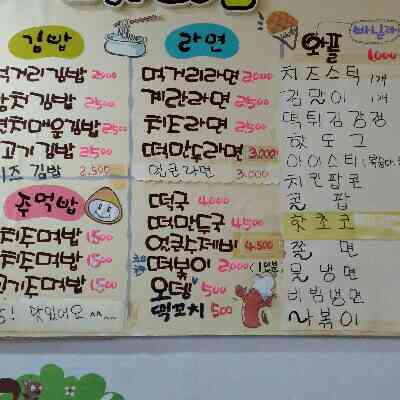 김밥
먹거리김밥 2000
참치김밥 2500
멸치매운김밥 2500
고기김밥 2500
치즈 김밥 2,500
주먹밥
치주먹밥 1500
치주먹밥 1500
고기주먹밥 1500
요! 맛있어요 ^^
라면
먹거리라면 2000
계란라면 2500
치즈라면 2500
떡만두라면 3,000
얼큰라면 3,000
떡국 4000
떡만두국 4500
얼큰수제비 4500
떡볶이 2000 (1인분)
오뎅 500
떡꼬치 500
와플
바닐라
1000
치즈스틱 1개
김말이 1개
떡튀김강정
핫도그
아이스티
치킨팝콘
콜팝
핫초코
쫄면
물냉면
비빔냉면
라볶이